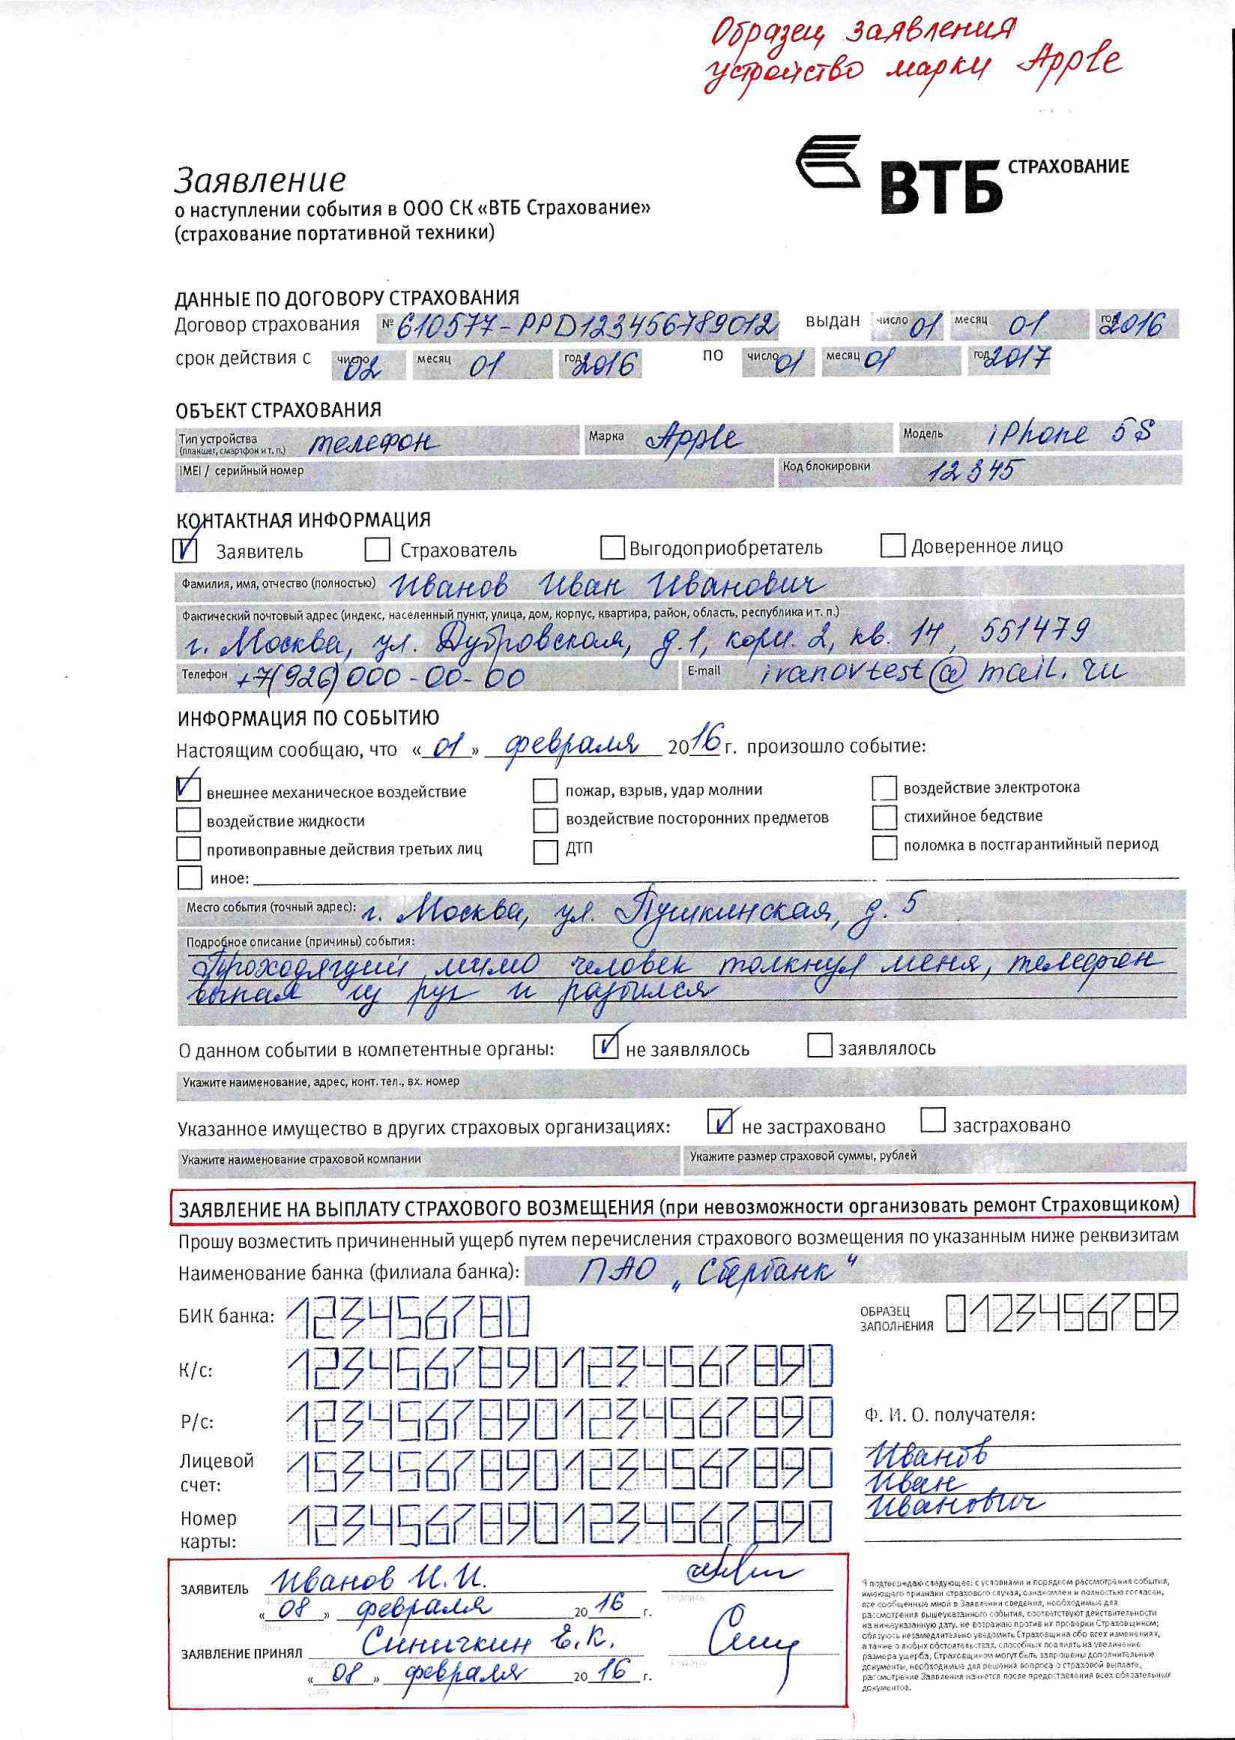 Образец заявления
устройство марки Apple
Заявление
о наступлении события в ООО СК «ВТБ Страхование»
(страхование портативной техники)
ВТБ СТРАХОВАНИЕ
ДАННЫЕ ПО ДОГОВОРУ СТРАХОВАНИЯ
Договор страхования № 610577-PPD123456789012 выдан число 01 месяц 01 год 2016
срок действия с число 02 месяц 01 год 2016 по число 01 месяц 01 год 2017
ОБЪЕКТ СТРАХОВАНИЯ
Тип устройства (планшет, смартфон и т. п.) телефон Марка Apple Модель iPhone 5S
IMEI / серийный номер Код блокировки 12345
КОНТАКТНАЯ ИНФОРМАЦИЯ
Заявитель Страхователь Выгодоприобретатель Доверенное лицо
Фамилия, имя, отчество (полностью) Иванов Иван Иванович
Фактический почтовый адрес (индекс, населенный пункт, улица, дом, корпус, квартира, район, область, республика и т. п.)
г. Москва, ул. Дубровская, д.1, корп. 2, кв. 14, 551479
Телефон +7(926)000-00-00 E-mail ivanovtest@mail.ru
ИНФОРМАЦИЯ ПО СОБЫТИЮ
Настоящим сообщаю, что «01» февраля 2016 г. произошло событие:
внешнее механическое воздействие пожар, взрыв, удар молнии воздействие электротока
воздействие жидкости воздействие посторонних предметов стихийное бедствие
противоправные действия третьих лиц ДТП поломка в постгарантийный период
иное:
Место события (точный адрес): г. Москва, ул. Пушкинская, д. 5
Подробное описание (причины) события:
Проходящий мимо человек толкнул меня, телефон
выпал из рук и разбился
О данном событии в компетентные органы: не заявлялось заявлялось
Укажите наименование, адрес, конт. тел., вх. номер
Указанное имущество в других страховых организациях: не застраховано застраховано
Укажите наименование страховой компании Укажите размер страховой суммы, рублей
ЗАЯВЛЕНИЕ НА ВЫПЛАТУ СТРАХОВОГО ВОЗМЕЩЕНИЯ (при невозможности организовать ремонт Страховщиком)
Прошу возместить причиненный ущерб путем перечисления страхового возмещения по указанным ниже реквизитам
Наименование банка (филиала банка): ПАО „Сбербанк"
БИК банка: 123456780 ОБРАЗЕЦ ЗАПОЛНЕНИЯ 0123456789
К/с: 12345678901234567890
Р/с: 12345678901234567890
Ф. И. О. получателя:
Лицевой счет: 15345678901234567890
Иванов
Иван
Иванович
Номер карты: 12345678901234567890
ЗАЯВИТЕЛЬ Иванов И.И.
«08» февраля 2016 г.
ЗАЯВЛЕНИЕ ПРИНЯЛ Синичкин Е.К.
«08» февраля 2016 г.
Я подтверждаю следующее: с условиями и порядком рассмотрения события,
имеющего признаки страхового случая, ознакомлен и полностью согласен,
все сообщенные мной в Заявлении сведения, необходимые для
рассмотрения вышеуказанного события, соответствуют действительности
на нижеуказанную дату, не возражаю против их проверки Страховщиком;
обязуюсь незамедлительно уведомить Страховщика обо всех изменениях,
а также о любых обстоятельствах, способных повлиять на увеличение
размера ущерба; Страховщиком могут быть запрошены дополнительные
документы, необходимые для решения вопроса о страховой выплате,
рассмотрение Заявления начнется после предоставления всех обязательных
документов.